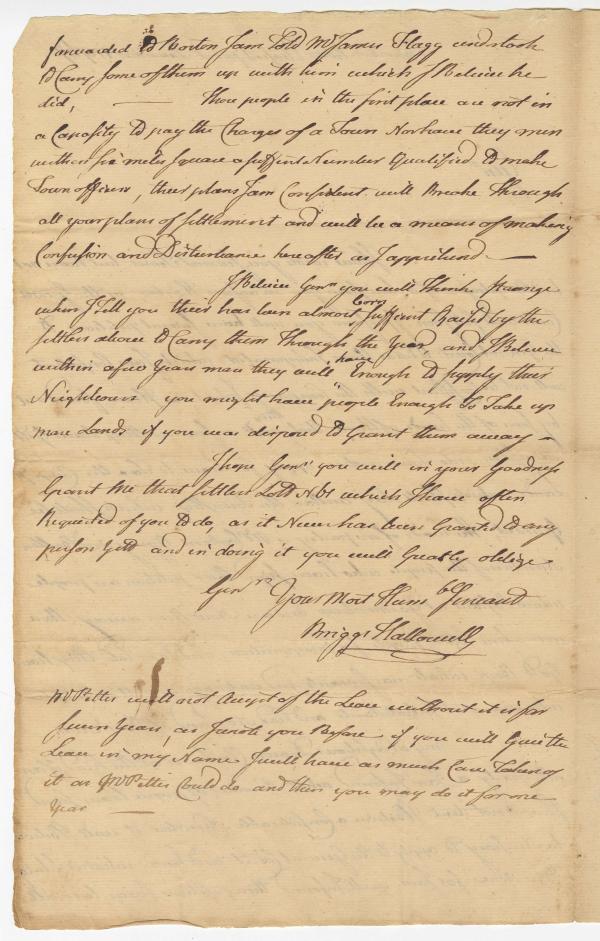 forwarded to Boston I am Told Mr James Flagg undertook
to Carry some of them up with him which I Beleive he
did, — These people in the first place are not in
a Capasity to pay the Charges of a Town Nor have they men
within six miles Square a suffient Number Qualified to make
Town officers, their plans I am Confident will Breake Through
all your plans of settlement and will be a means of making
Confusion and Disturbance hereafter as I apprihend —
I Beleive Genn you will Think strange
when I tell you their has been almost Corn suffient Raised by the
settlers above to Carry them Through the Year, and I Beleive
within a few Years more they will have Enough to supply their
Neighbours you might have people Enough to Take up
more Lands if you was disposed to Grant them away —
I hope Genn you will in your Goodness
Grant me that settlers Lott which I have often
Requested of you to do, as it Never has been Granted to any
person Yett and in doing it you will Greatly oblige
Genrs Your Most Humble Servand
Briggs Hallowell
Mr Pettis will not Accept of the Lease without it is for
seven Years, as I wrote you Before if you will Give the
Lease in my Name I will have as much Care Taken of
it as Mr Pettis Could do and then you may do it for one
Year —